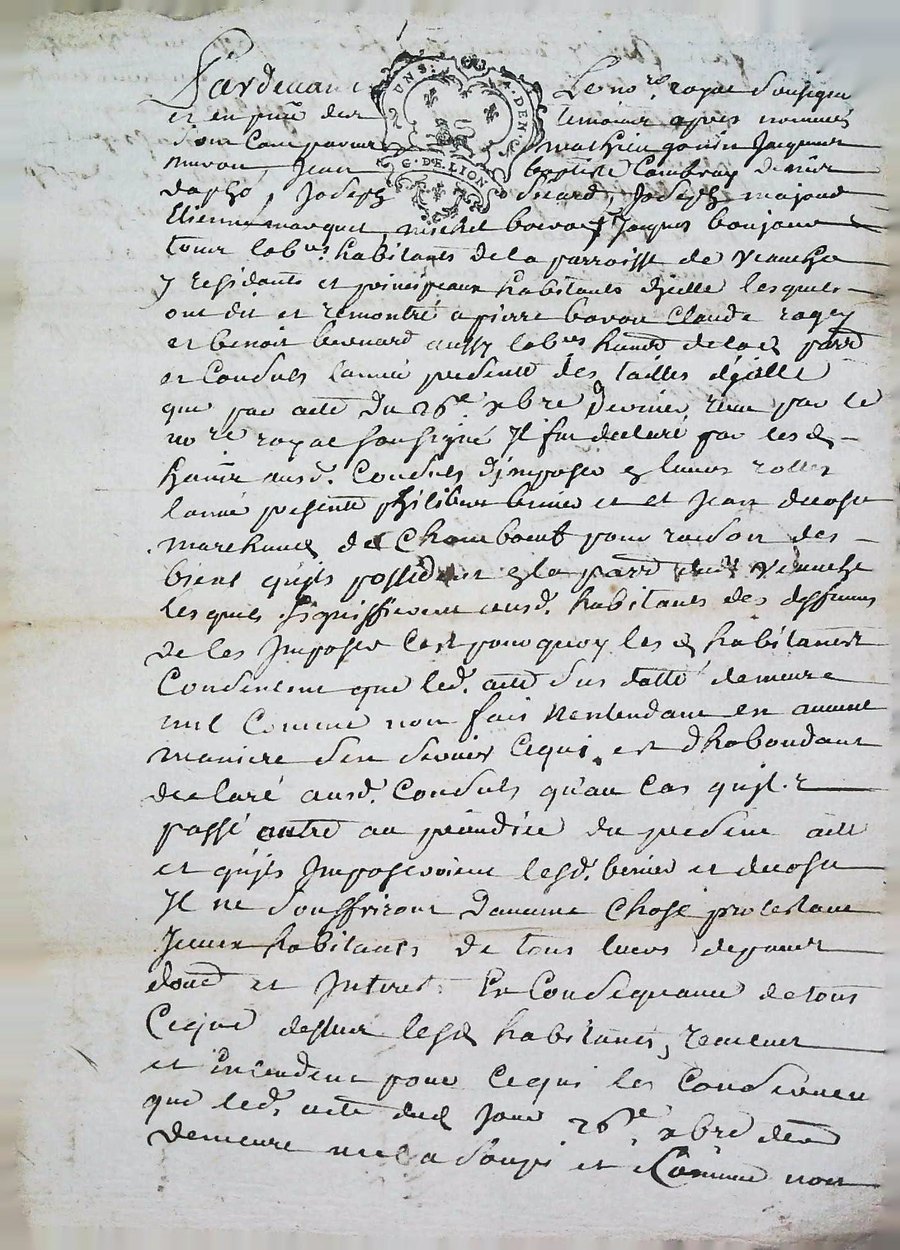 Pardevant Le no.re royal soussigne
et en pnce des temoins apres nommés
sont Comparus mathieu Jacques
Jean baptiste Combray denis
Joseph sicard, Joseph majoud
Etienne marquet, michel bovon Jacques bonjour
tous labrs habitants de la parroisse de veauche
y residants et principeaux habitants dycelle lesquels
ont dit et remontré a pierre bovon Claude ragey
et benoit bernard aussy labrs hants de lad parr
et Consuls lannée presente des tailles dycelle
que par acte du 26e xbre dernier, recu par le
no.re royal soussigné Il fut declaré par lesd
hants ausd. Consuls dimposer es leurs rolles
lannée presente philibert et et Jean decosu
marchands de Chambœuf pour raison des
biens qu'ils possedent en la parr dud veauche
lesquels signiffierent ausd. habitants des deffenses
de les Imposer C'est pourquoy lesd habitants
Consentent que led. acte sus datté demeure
nul comme non fait Nentendant en aucune
maniere sen servir Cequi est dhabondant
declaré ausd. Consuls qu'au Cas quil
passé outre au prejudice du present acte
et quils Imposeroient lesd. et decosu
Il ne souffriront d'aucune chose protestant
Jceux habitants de tous leurs depans
dom et Interet. En Consequance de tous
Ceque dessus lesd habitants, veulent
et entendent pour Cequi les Conserne
que led. acte dud Jour 26e xbre der
demeure nul assoupi et Comme non